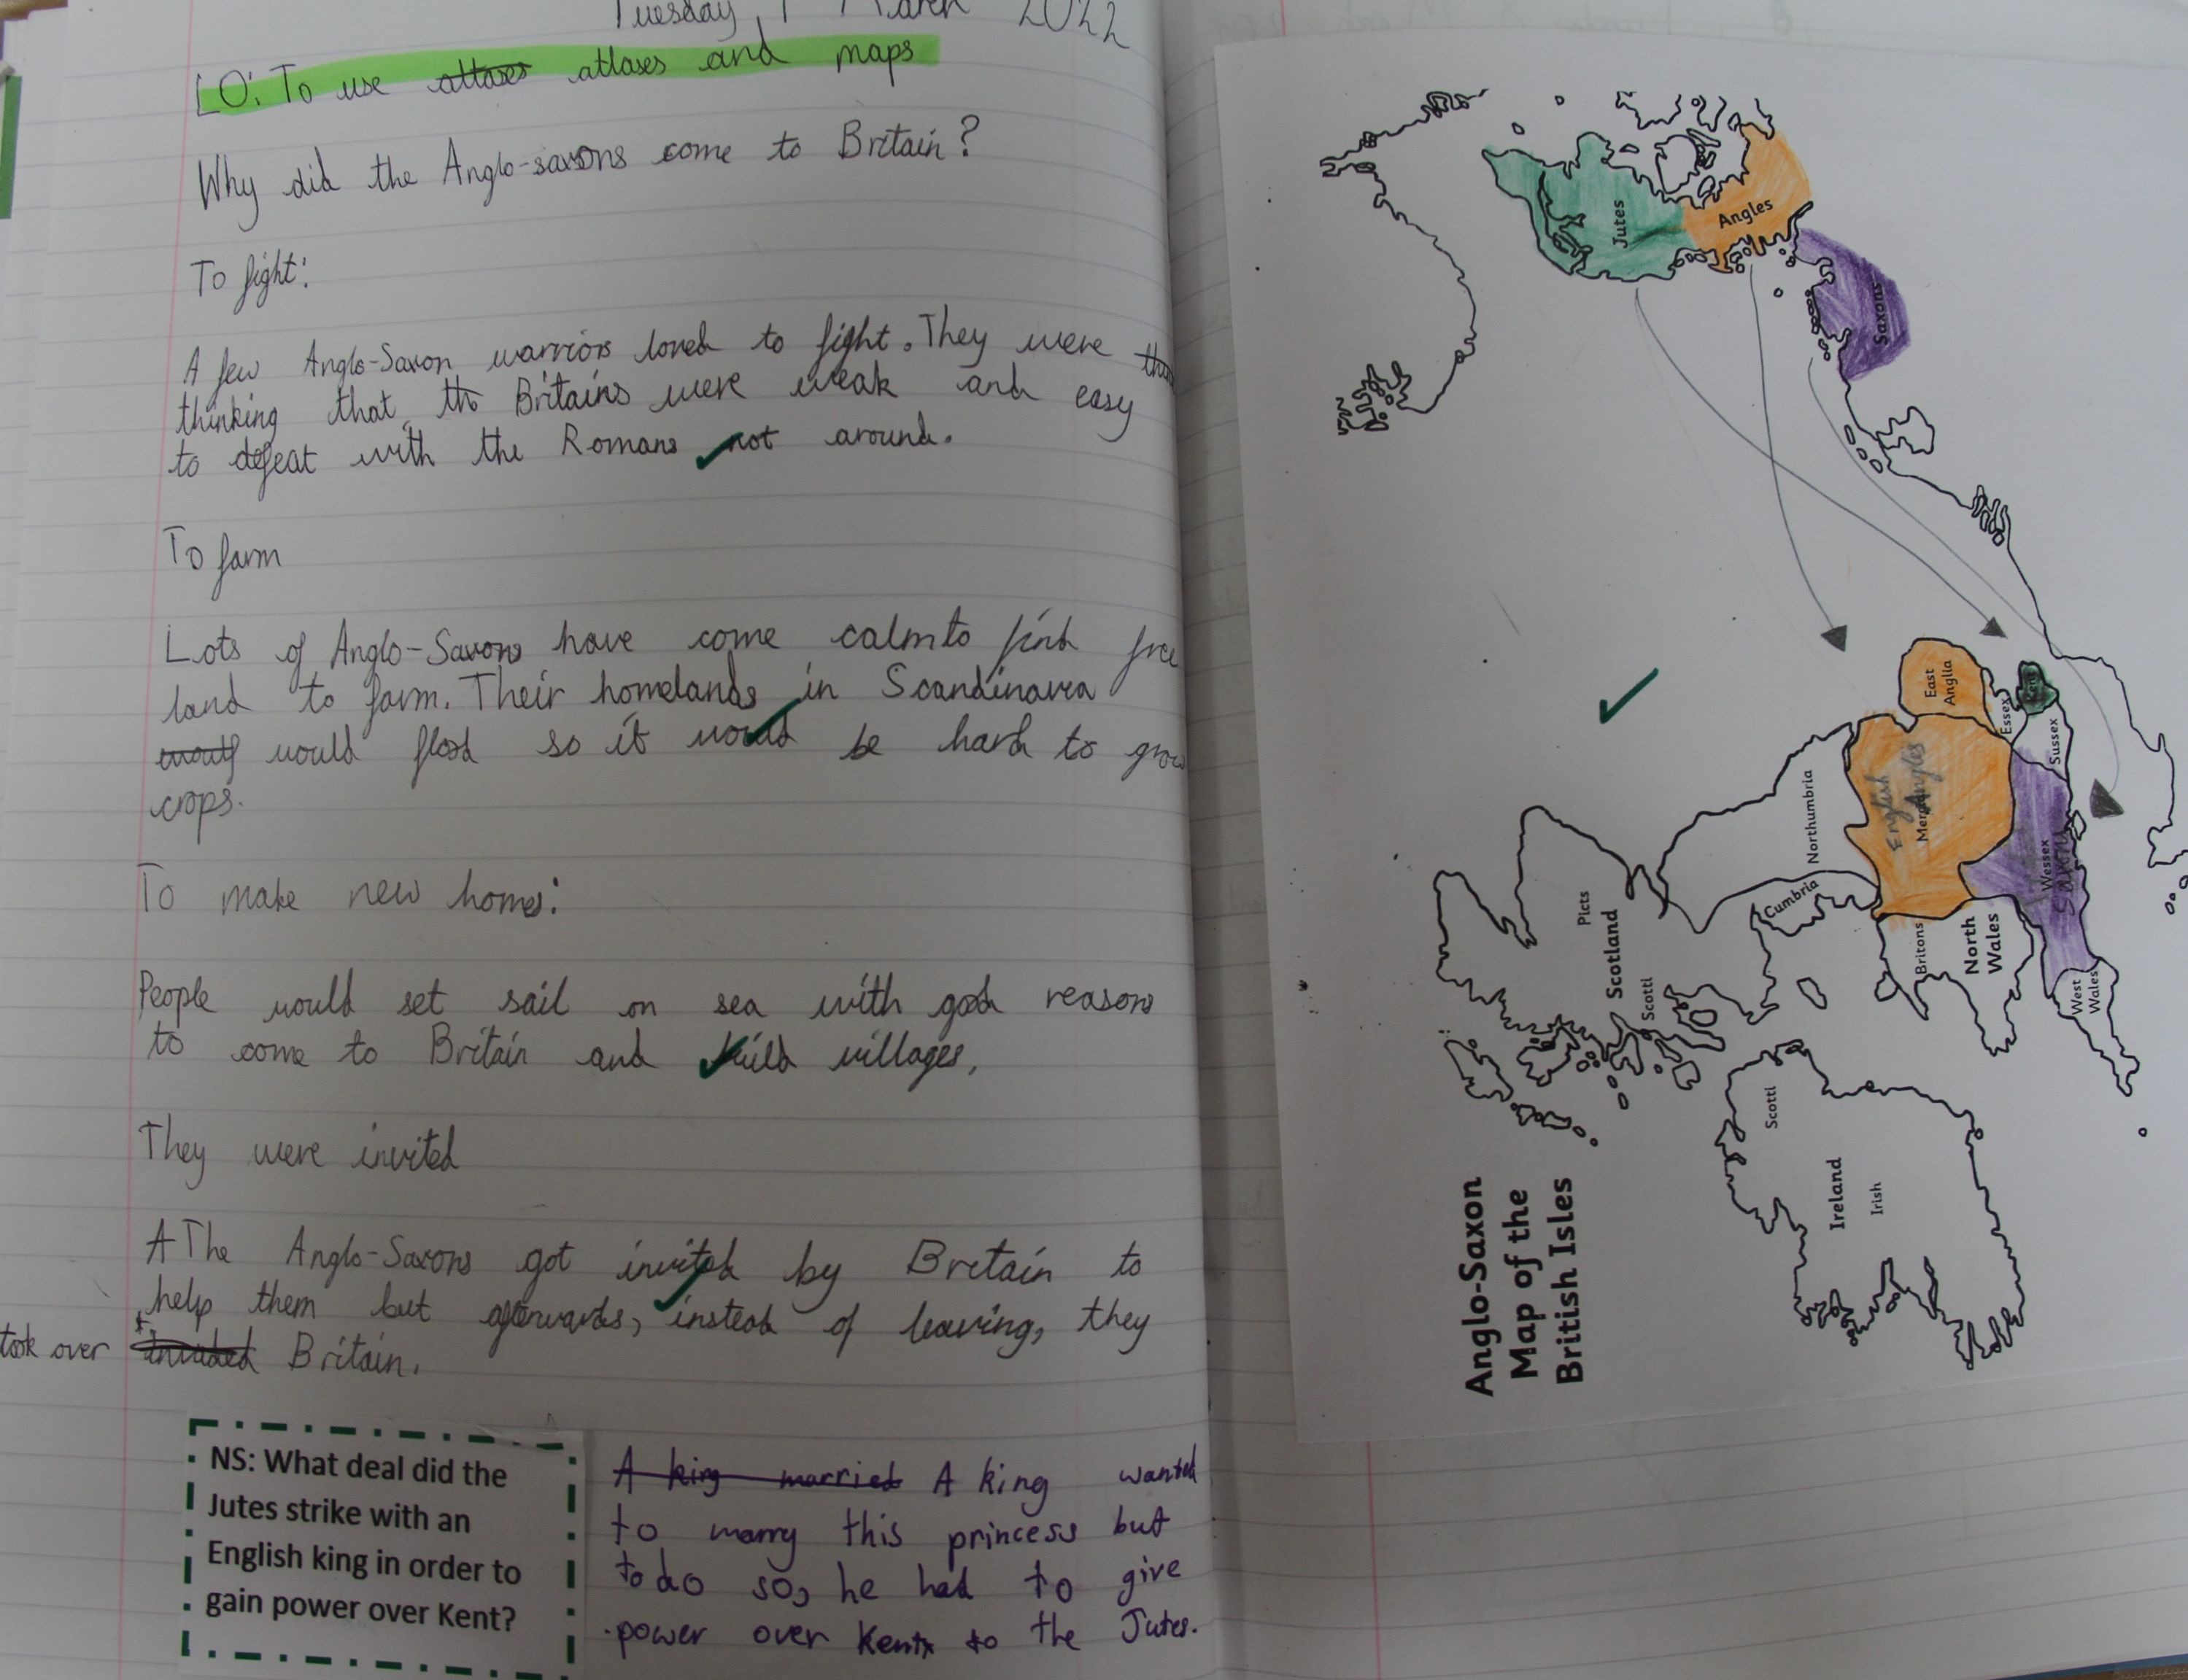 Tuesday, 1 March 2022
LO: To use atlases atlases and maps
Why did the Anglo-saxons come to Britain?
To fight:
A few Anglo-Saxon warriors loved to fight. They were
thinking that the Britains were weak and easy
to defeat with the Romans not around.
To farm
Lots of Anglo-Saxons have come calm to find free
land to farm. Their homelands in Scandinavia
would flood so it would be hard to grow
crops.
To make new homes:
People would set sail on sea with good reasons
to come to Britain and build villages.
They were invited
A The Anglo-Saxons got invited by Britain to
help them but afterwards, instead of leaving, they
took over invaded Britain.
NS: What deal did the
Jutes strike with an
English king in order to
gain power over Kent?
A king married A king wanted
to marry this princess but
to do so, he had to give
power over Kent to the Jutes.
Anglo-Saxon
Map of the
British Isles
Jutes
Angles
Saxons
East
Anglia
Kent
Essex
Sussex
Northumbria
English
Angles
Wessex
Cumbria
Picts
Scotland
Scotti
Britons
North
Wales
West
Wales
Scotti
Ireland
Irish